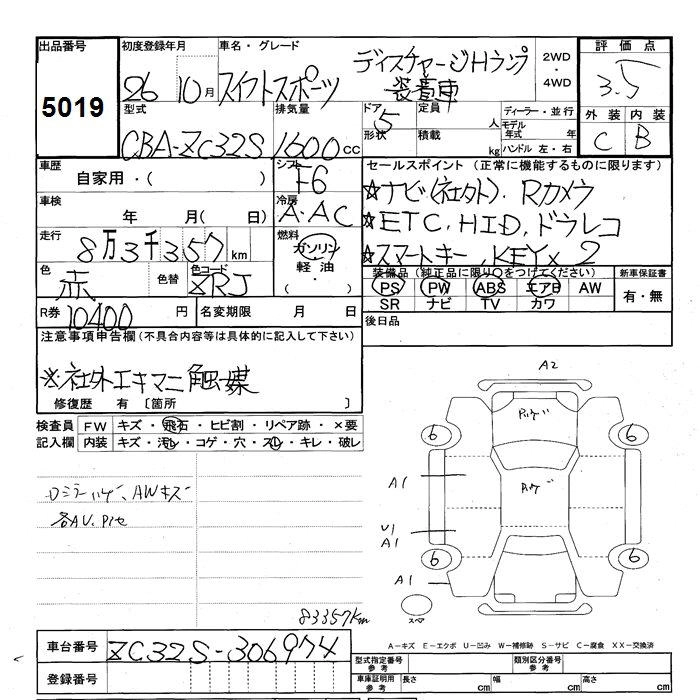 出品番号
5019
初度登録年月
26 10月
車名・グレード
スイフトスポーツ
ディスチャージHランプ
装着車
2WD
・
4WD
評価点
3.5
外装 内装
C B
型式
CBA-ZC32S
排気量
1600cc
ドア
形状
5
定員
人
積載
kg
ディーラー・並行
モデル
年式 年
ハンドル 左・右
車歴
自家用・( )
シフト
F6
車検
年 月( 日)
冷房
A・AC
走行
8万3千357km
燃料
ガソリン
軽油
( ・ )
色
赤
色替
色コード
ZRJ
R券
10400円
名変期限 月 日
セールスポイント (正常に機能するものに限ります)
☆ナビ(社外)、Rカメラ
☆ETC、HID、ドラレコ
☆スマートキー、KEY×2
装備品(純正品に限り○をつけてください)
PS PW ABS エアB AW
SR ナビ TV カワ
新車保証書
有・無
後日品
注意事項申告欄(不具合内容等は具体的に記入して下さい)
※社外エキマニ触媒
修復歴 有 〔箇所 〕
検査員
記入欄
FW キズ・飛石・ヒビ割・リペア跡・×要
内装 キズ・汚レ・コゲ・穴・スレ・キレ・破レ
AWキズ
A2
6 6
A1
U1
A1
6 6
A1
スペア
83357km
A-キズ E-エクボ U-凹み W-補修跡 S-サビ C-腐食 XX-交換済
車台番号
ZC32S-306974
登録番号
型式指定番号
参考
類別区分番号
参考
車庫証明用
参考
長さ cm 幅 cm 高さ cm